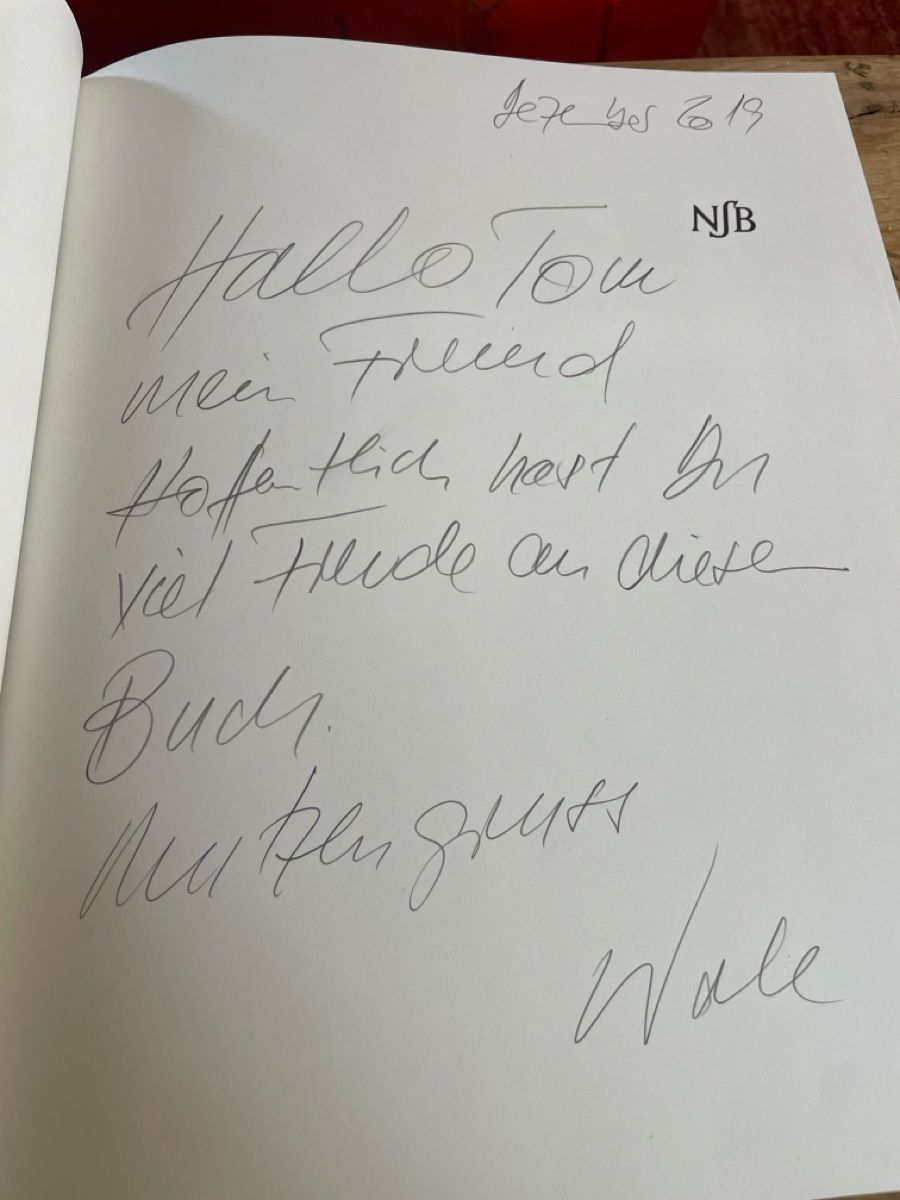 Dezember 2019
NSB
Hallo Tom
mein Freund
Hoffentlich hast Du
viel Freude an diesem
Buch.
Mutzengruss
Wale